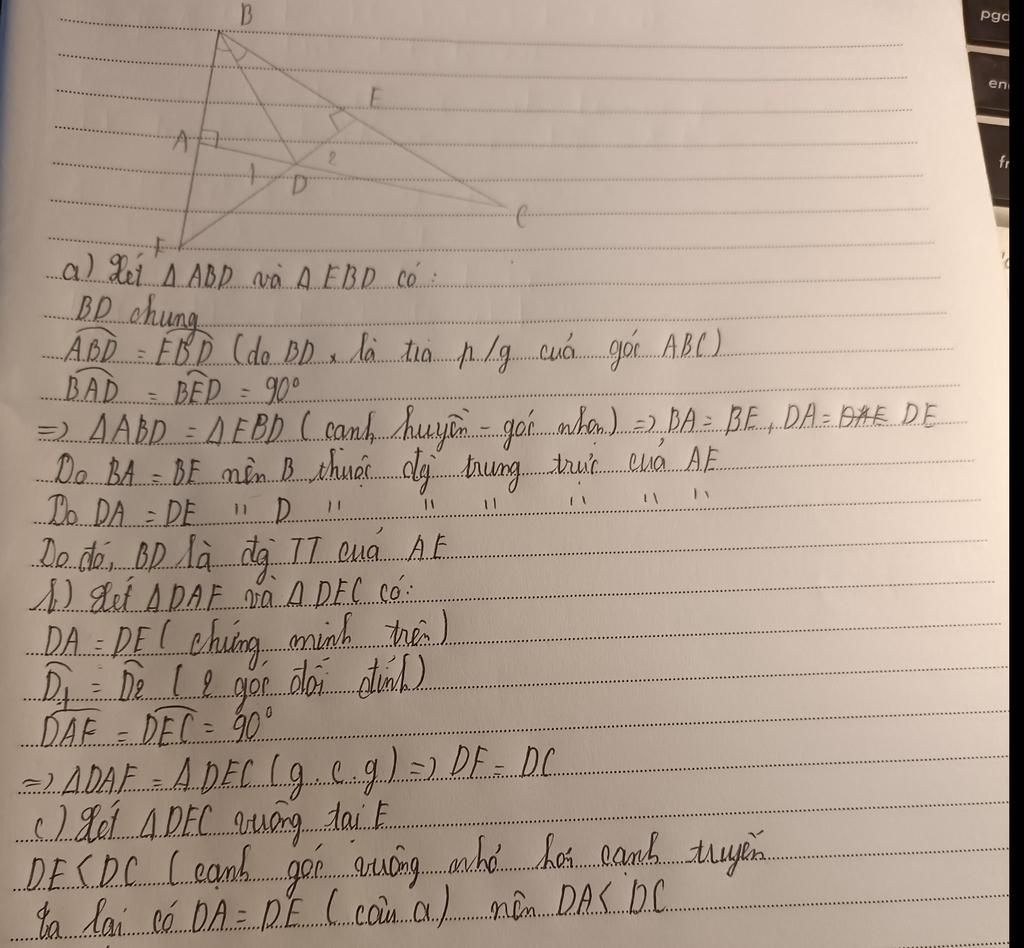 B
E
A
2
1
D
C
F
a) Xét Δ ABD và Δ EBD có:
BD chung
ABD = EBD (do BD là tia p/g của góc ABC)
BAD = BED = 90°
=> ΔABD = ΔEBD (cạnh huyền - góc nhọn) => BA = BE, DA = DAE DE
Do BA = BE nên B thuộc đg trung trực của AE
Do DA = DE " D " " " " " "
Do đó, BD là đg TT của AE
b) Xét ΔDAF và ΔDEC có:
DA = DE (chứng minh trên)
D1 = D2 (2 góc đối đỉnh)
DAF = DEC = 90°
=> ΔDAF = ΔDEC (g.c.g) => DF = DC
c) Xét ΔDEC vuông tại E
DE < DC (cạnh góc vuông nhỏ hơi cạnh truyền
ta lại có DA = DE (câu a) nên DA < DC
pgd
en